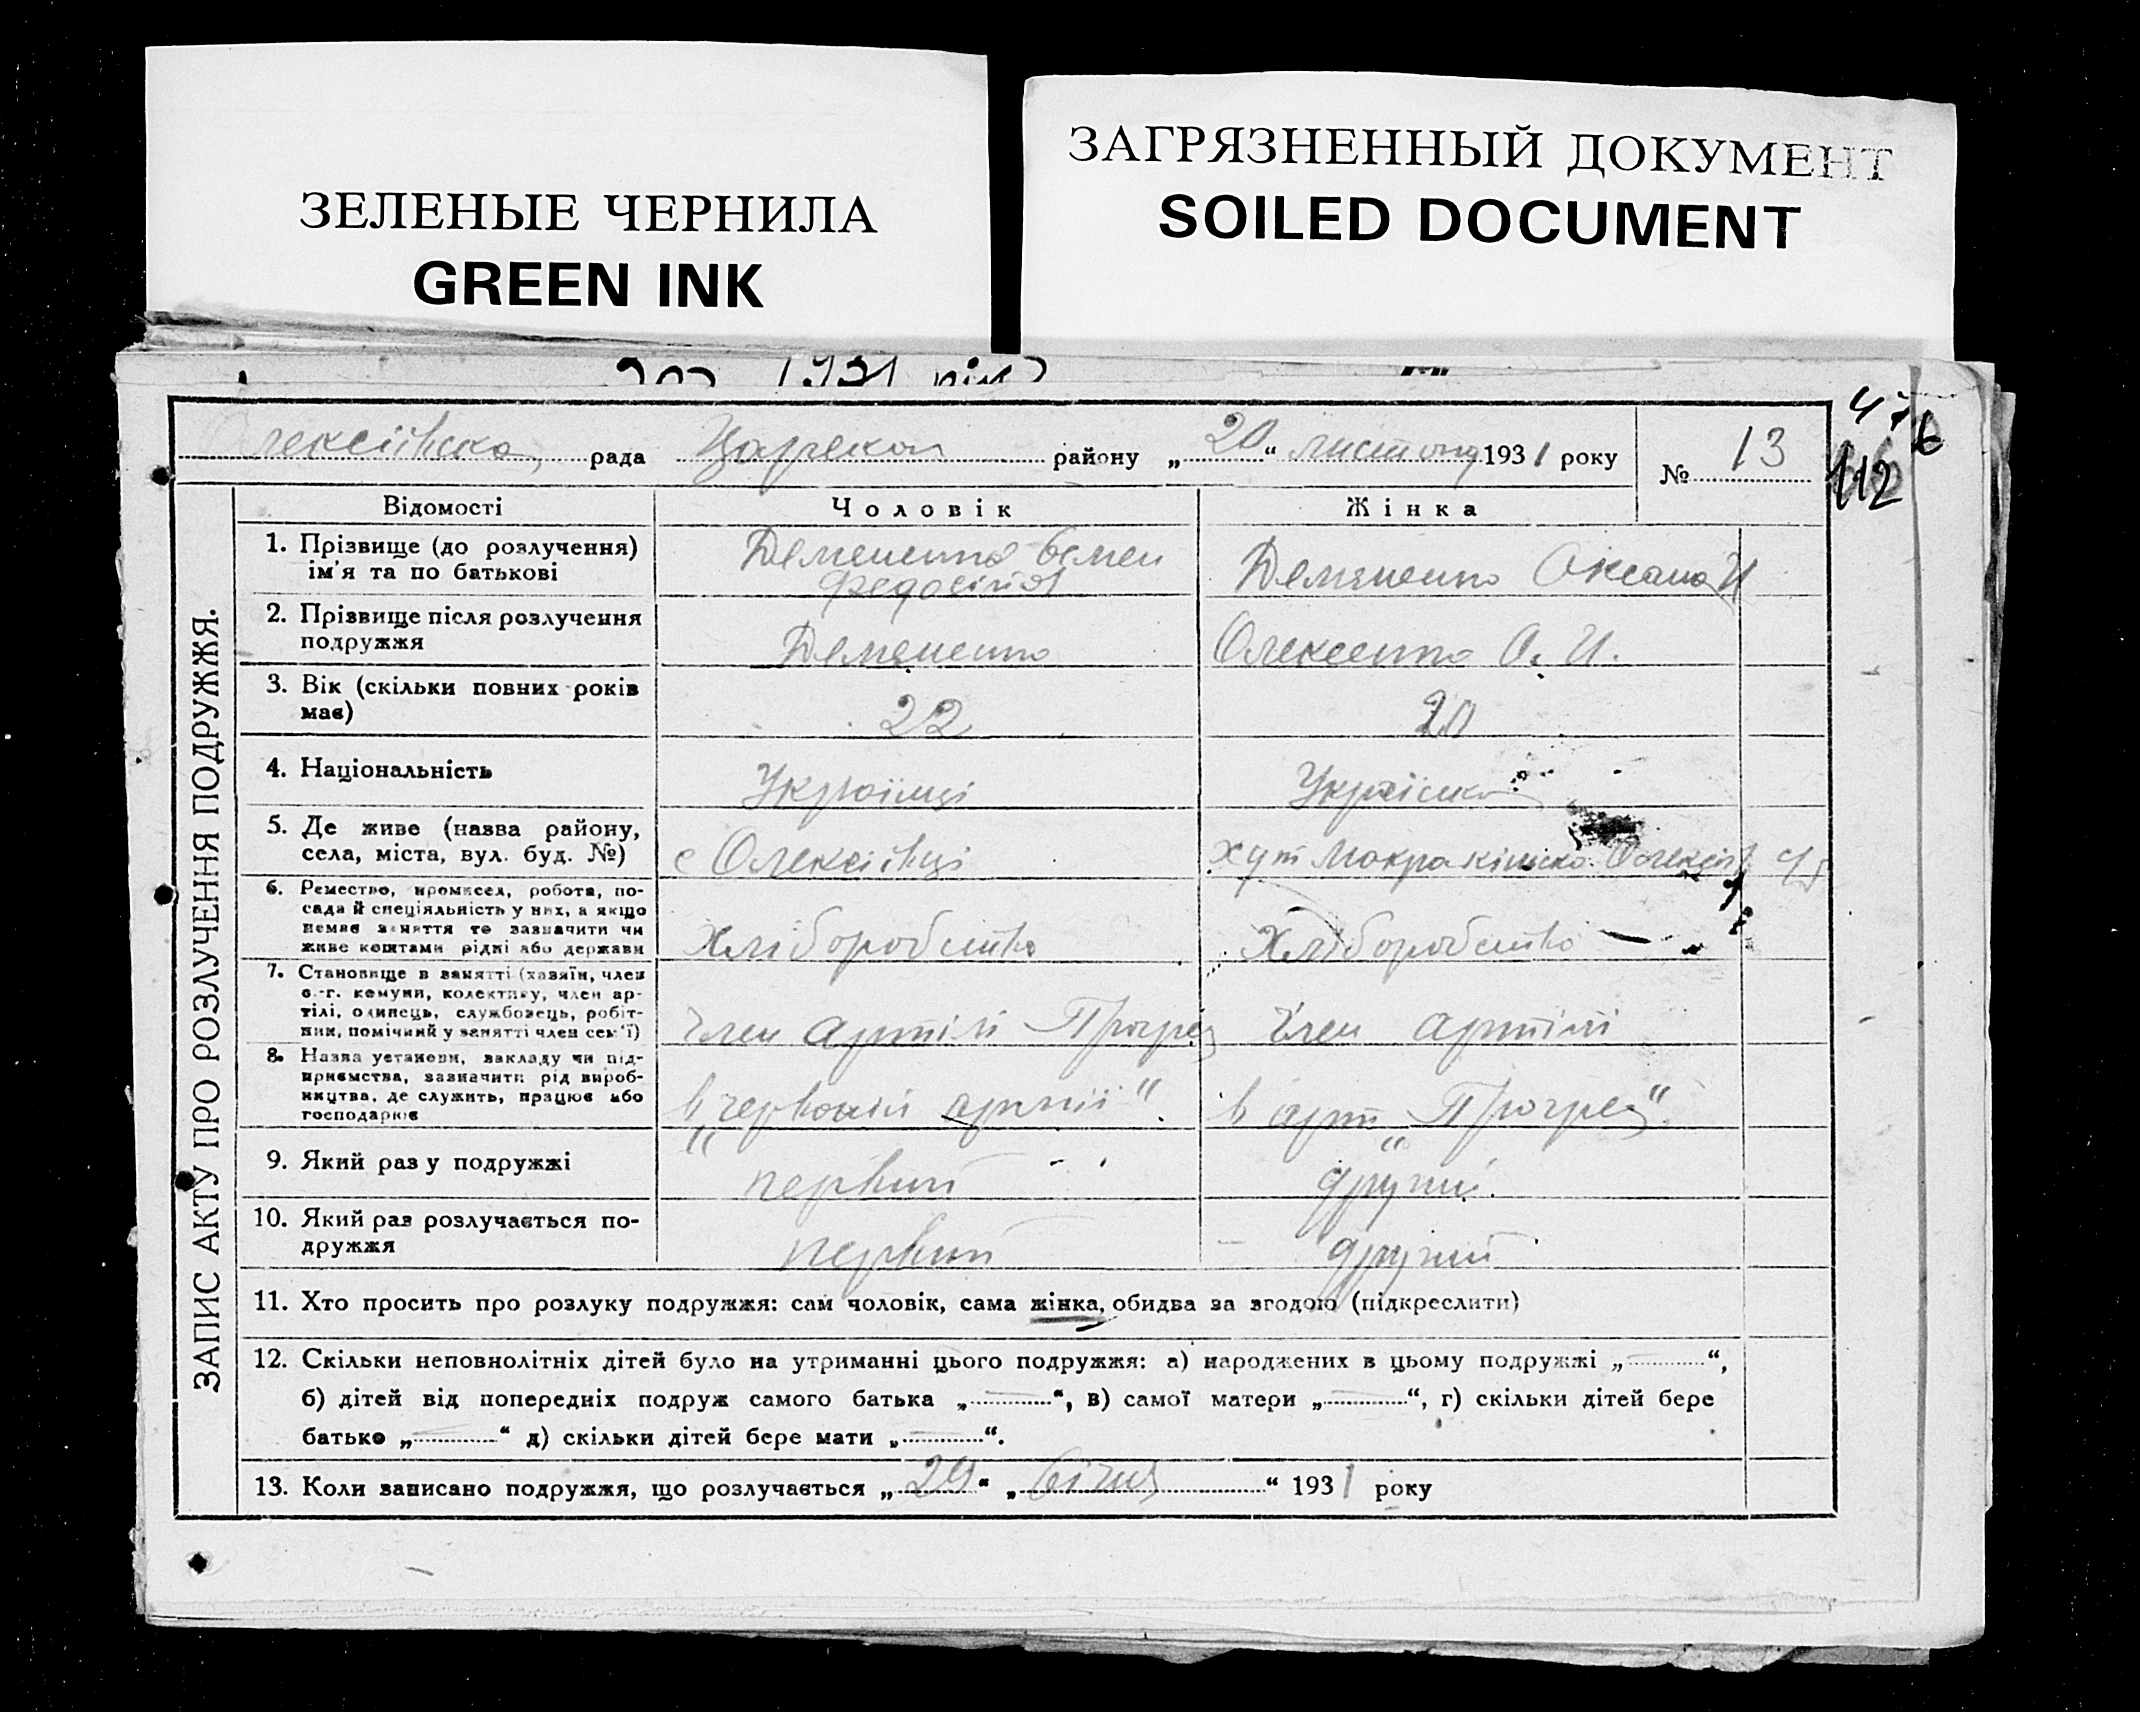 ЗЕЛЕНЫЕ ЧЕРНИЛА
GREEN INK
ЗАГРЯЗНЕННЫЙ ДОКУМЕНТ
SOILED DOCUMENT
1931
Олексіївська рада Царекон району „20“ листопад 1931 року № 13
112
ЗАПИС АКТУ ПРО РОЗЛУЧЕННЯ ПОДРУЖЖЯ.
Відомості Чоловік Жінка
1. Прізвище (до розлучення) ім'я та по батькові
Демяненко Семен
Федосійов
Демяненко Оксана И
2. Прізвище після розлучення подружжя
Демяненко
Олексеенко О. И.
3. Вік (скільки повних років має)
22
20
4. Національність
Українці
Українка
5. Де живе (назва району, села, міста, вул. буд. №)
с Олексіївці
хут Мокра
6. Ремество, промисел, робота, посада й спеціяльність у них, а якщо немає заняття то зазначити чи живе коштами рідні або держави
Хліборобство
Хліборобство
7. Становище в занятті (хазяїн, член с.-г. комуни, колективу, член артілі, одинець, службовець, робітник, помічний у занятті член сем'ї)
член артілі Прогрес
член артілі
8. Назва установи, закладу чи підприємства, зазначити рід виробництва, де служить, працює або господарює
в „червоній армії“.
в арт „Прогрес“
9. Який раз у подружжі
первий
другий
10. Який раз розлучається подружжя
первий
другий
11. Хто просить про розлуку подружжя: сам чоловік, сама жінка, обидва за згодою (підкреслити)
12. Скільки неповнолітніх дітей було на утриманні цього подружжя: а) народжених в цьому подружжі „—“,
б) дітей від попередніх подруж самого батька „—“, в) самої матери „—“, г) скільки дітей бере
батько „—“ д) скільки дітей бере мати „—“.
13. Коли записано подружжя, що розлучається „29“ „Січня“ 1931 року